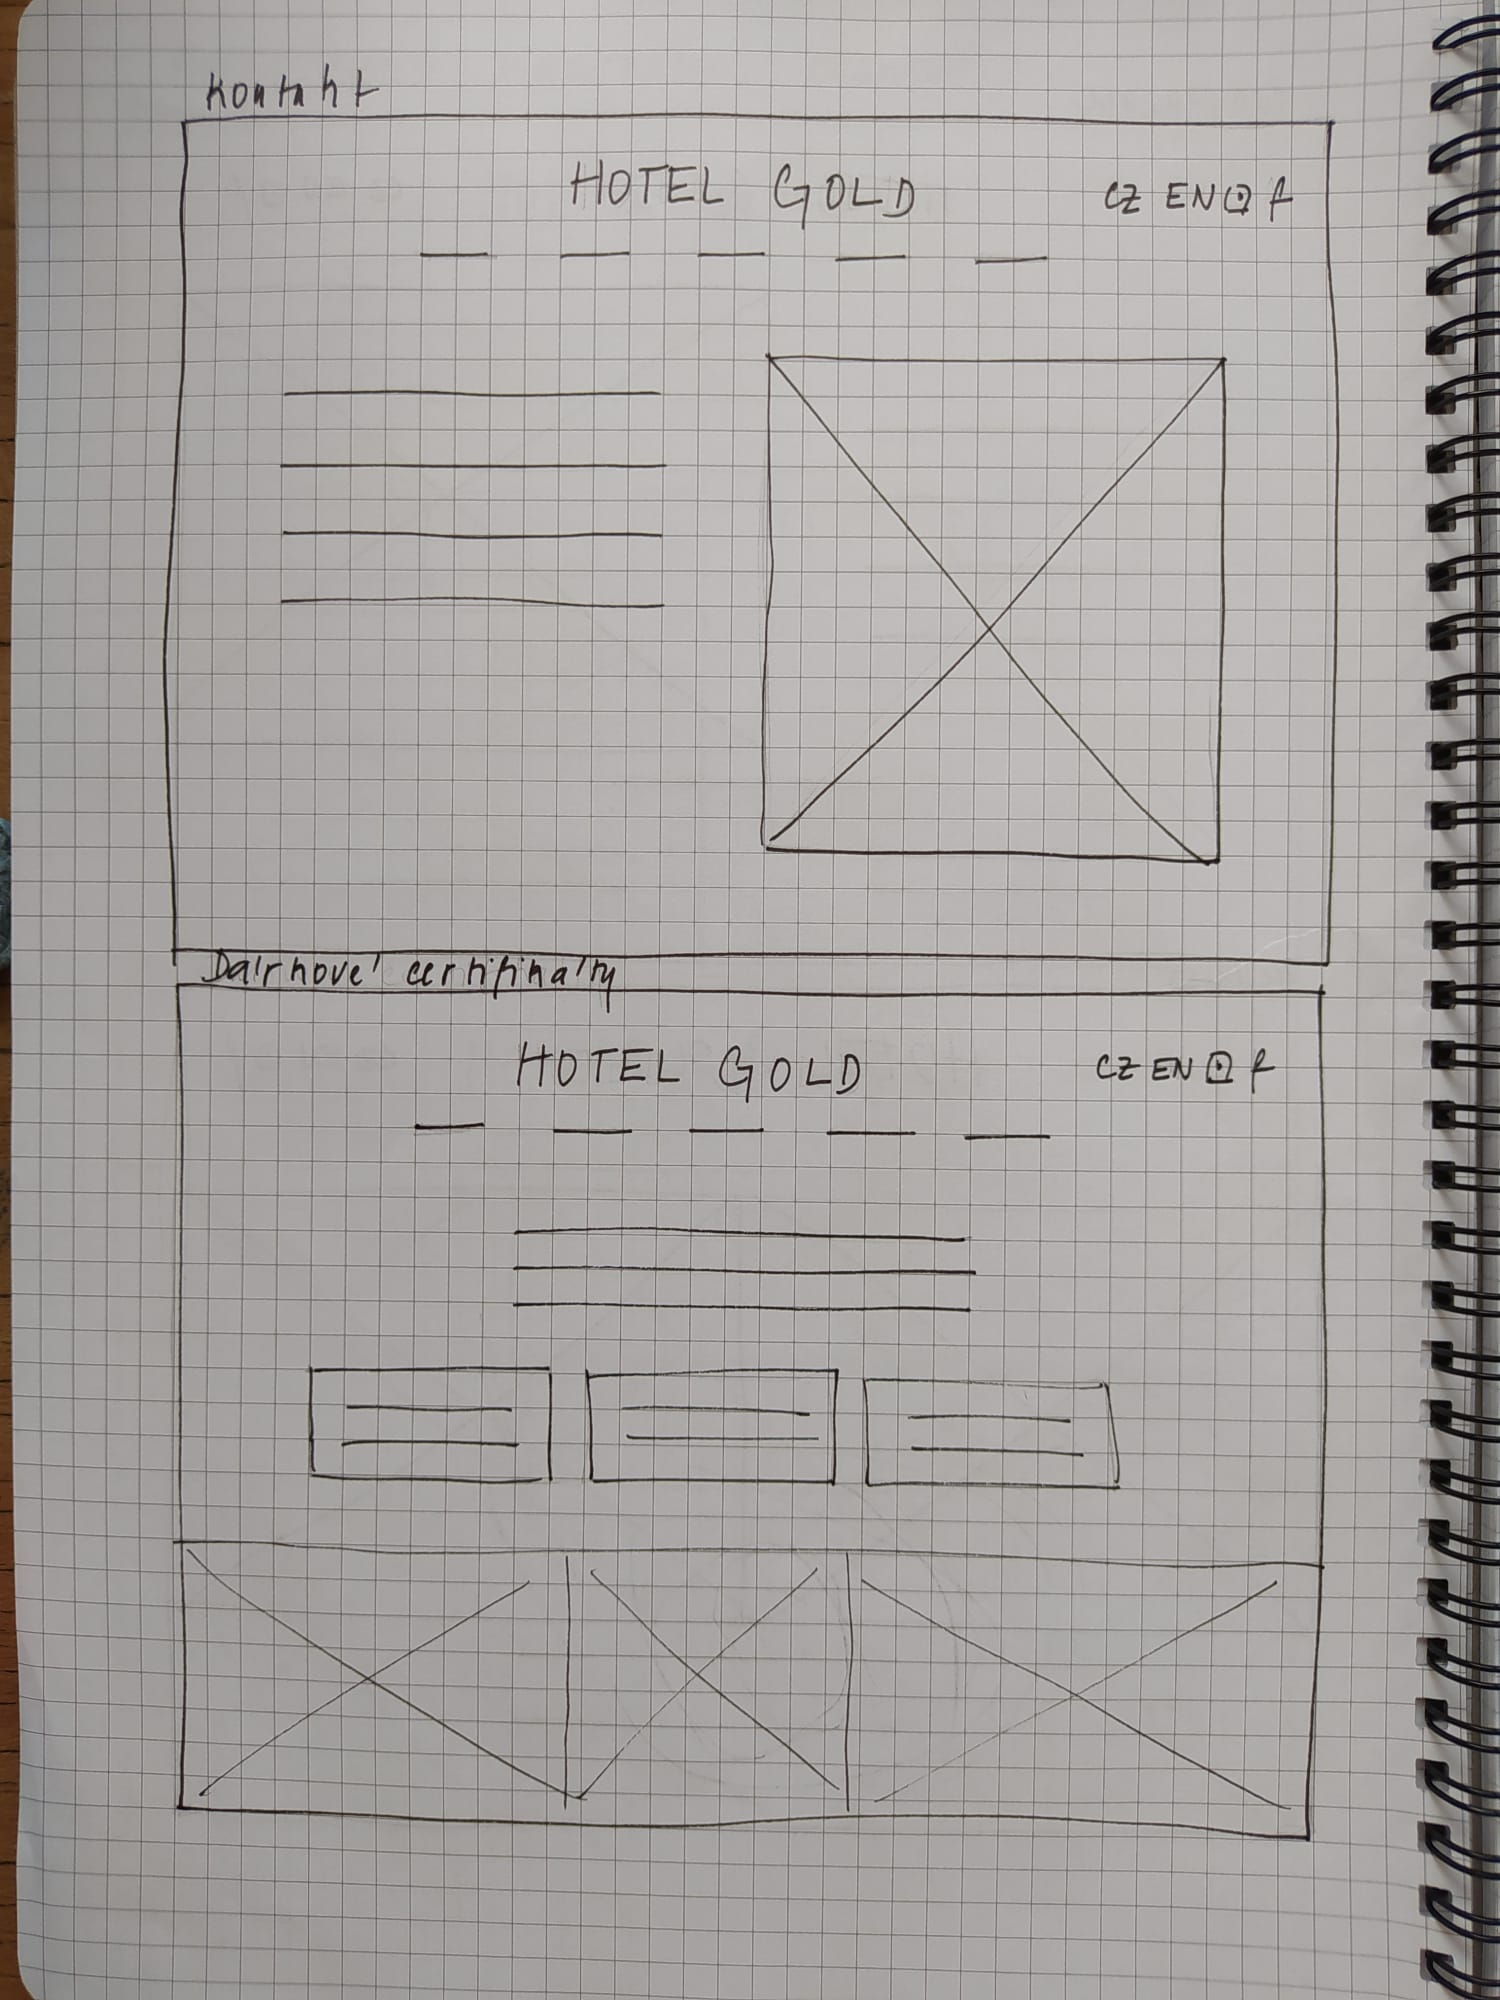 Kontakt
HOTEL GOLD
CZ EN f
Dárkové certifikáty
HOTEL GOLD
CZ EN f